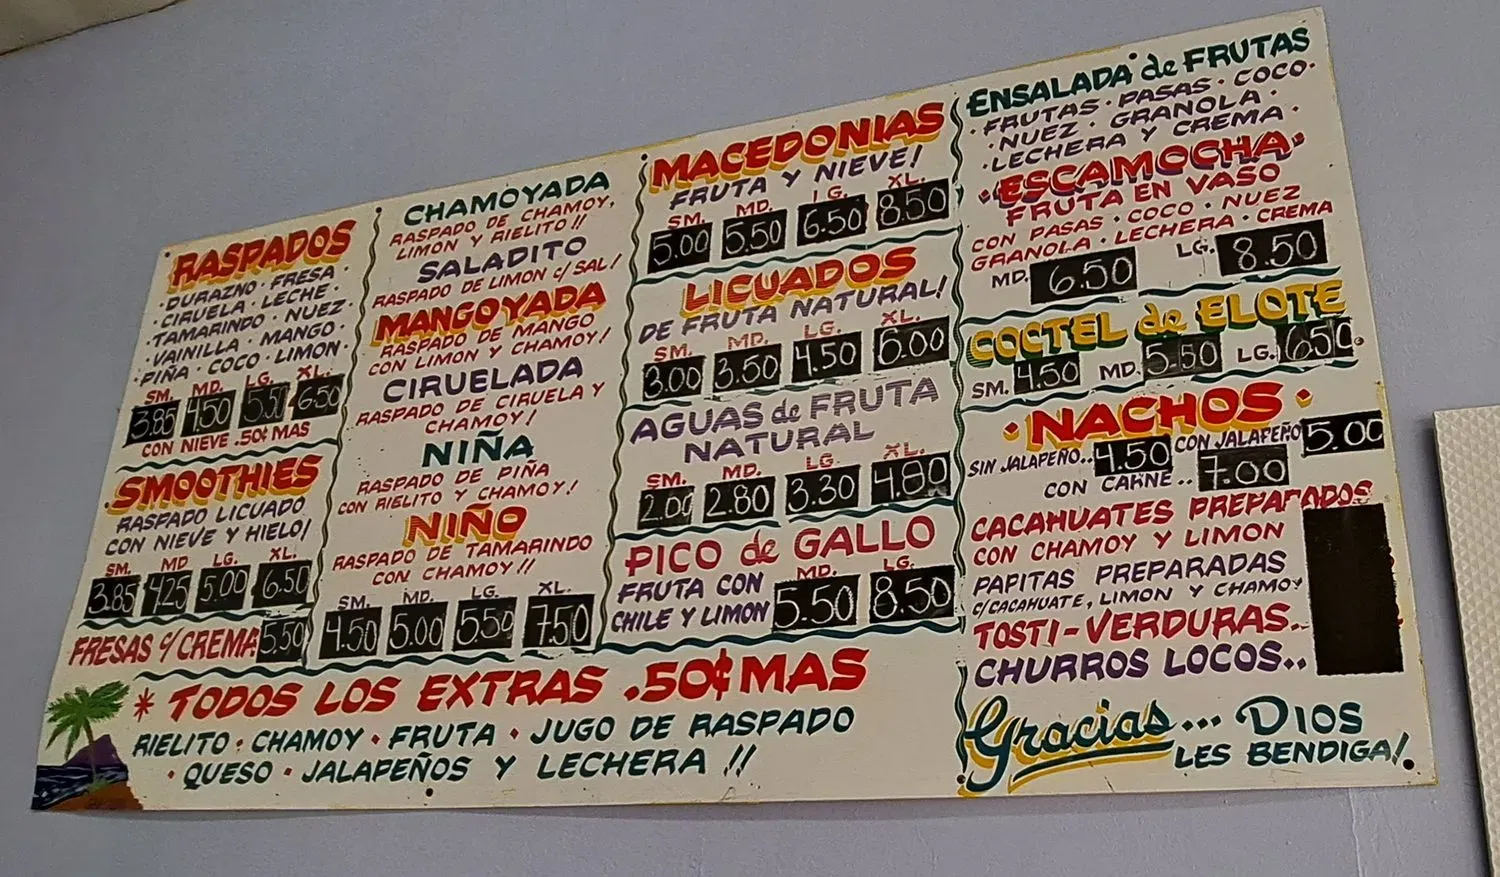 RASPADOS
· DURAZNO · FRESA ·
· CIRUELA · LECHE ·
· TAMARINDO · NUEZ
· VAINILLA · MANGO ·
· PIÑA · COCO · LIMON ·
SM. MD. LG. XL.
3.85 4.50 5.50 6.50
CON NIEVE .50¢ MAS
SMOOTHIES
RASPADO LICUADO
CON NIEVE Y HIELO!
SM. MD LG. XL.
3.85 4.25 5.00 6.50
FRESAS C/ CREMA 5.50
CHAMOYADA
RASPADO DE CHAMOY,
LIMON Y RIELITO!!
SALADITO
RASPADO DE LIMON C/ SAL!
MANGOYADA
RASPADO DE MANGO
CON LIMON Y CHAMOY!
CIRUELADA
RASPADO DE CIRUELA Y
CHAMOY!
NIÑA
RASPADO DE PIÑA
CON RIELITO Y CHAMOY!
NIÑO
RASPADO DE TAMARINDO
CON CHAMOY!!
SM. MD. LG. XL.
4.50 5.00 5.50 7.50
MACEDONIAS
FRUTA Y NIEVE!
SM. MD. LG. XL.
5.00 5.50 6.50 8.50
LICUADOS
DE FRUTA NATURAL!
SM. MD. LG. XL.
3.00 3.50 4.50 6.00
AGUAS de FRUTA
NATURAL
SM. MD. LG. XL.
2.00 2.80 3.30 4.80
PICO de GALLO
FRUTA CON
CHILE Y LIMON
MD. LG.
5.50 8.50
ENSALADA de FRUTAS
· FRUTAS · PASAS · COCO ·
· NUEZ · GRANOLA ·
· LECHERA Y CREMA ·
· ESCAMOCHA ·
FRUTA EN VASO
CON PASAS · COCO · NUEZ
GRANOLA · LECHERA · CREMA
MD. 6.50 LG. 8.50
COCTEL de ELOTE
SM. 4.50 MD. 5.50 LG. 6.50
· NACHOS ·
SIN JALAPEÑO.. 4.50 CON JALAPEÑO 5.00
CON CARNE.. 7.00
CACAHUATES PREPARADOS
CON CHAMOY Y LIMON
PAPITAS PREPARADAS
C/CACAHUATE, LIMON Y CHAMOY
TOSTI-VERDURAS..
CHURROS LOCOS..
* TODOS LOS EXTRAS .50¢ MAS
RIELITO · CHAMOY · FRUTA · JUGO DE RASPADO
· QUESO · JALAPEÑOS Y LECHERA !!
Gracias... DIOS
LES BENDIGA!.